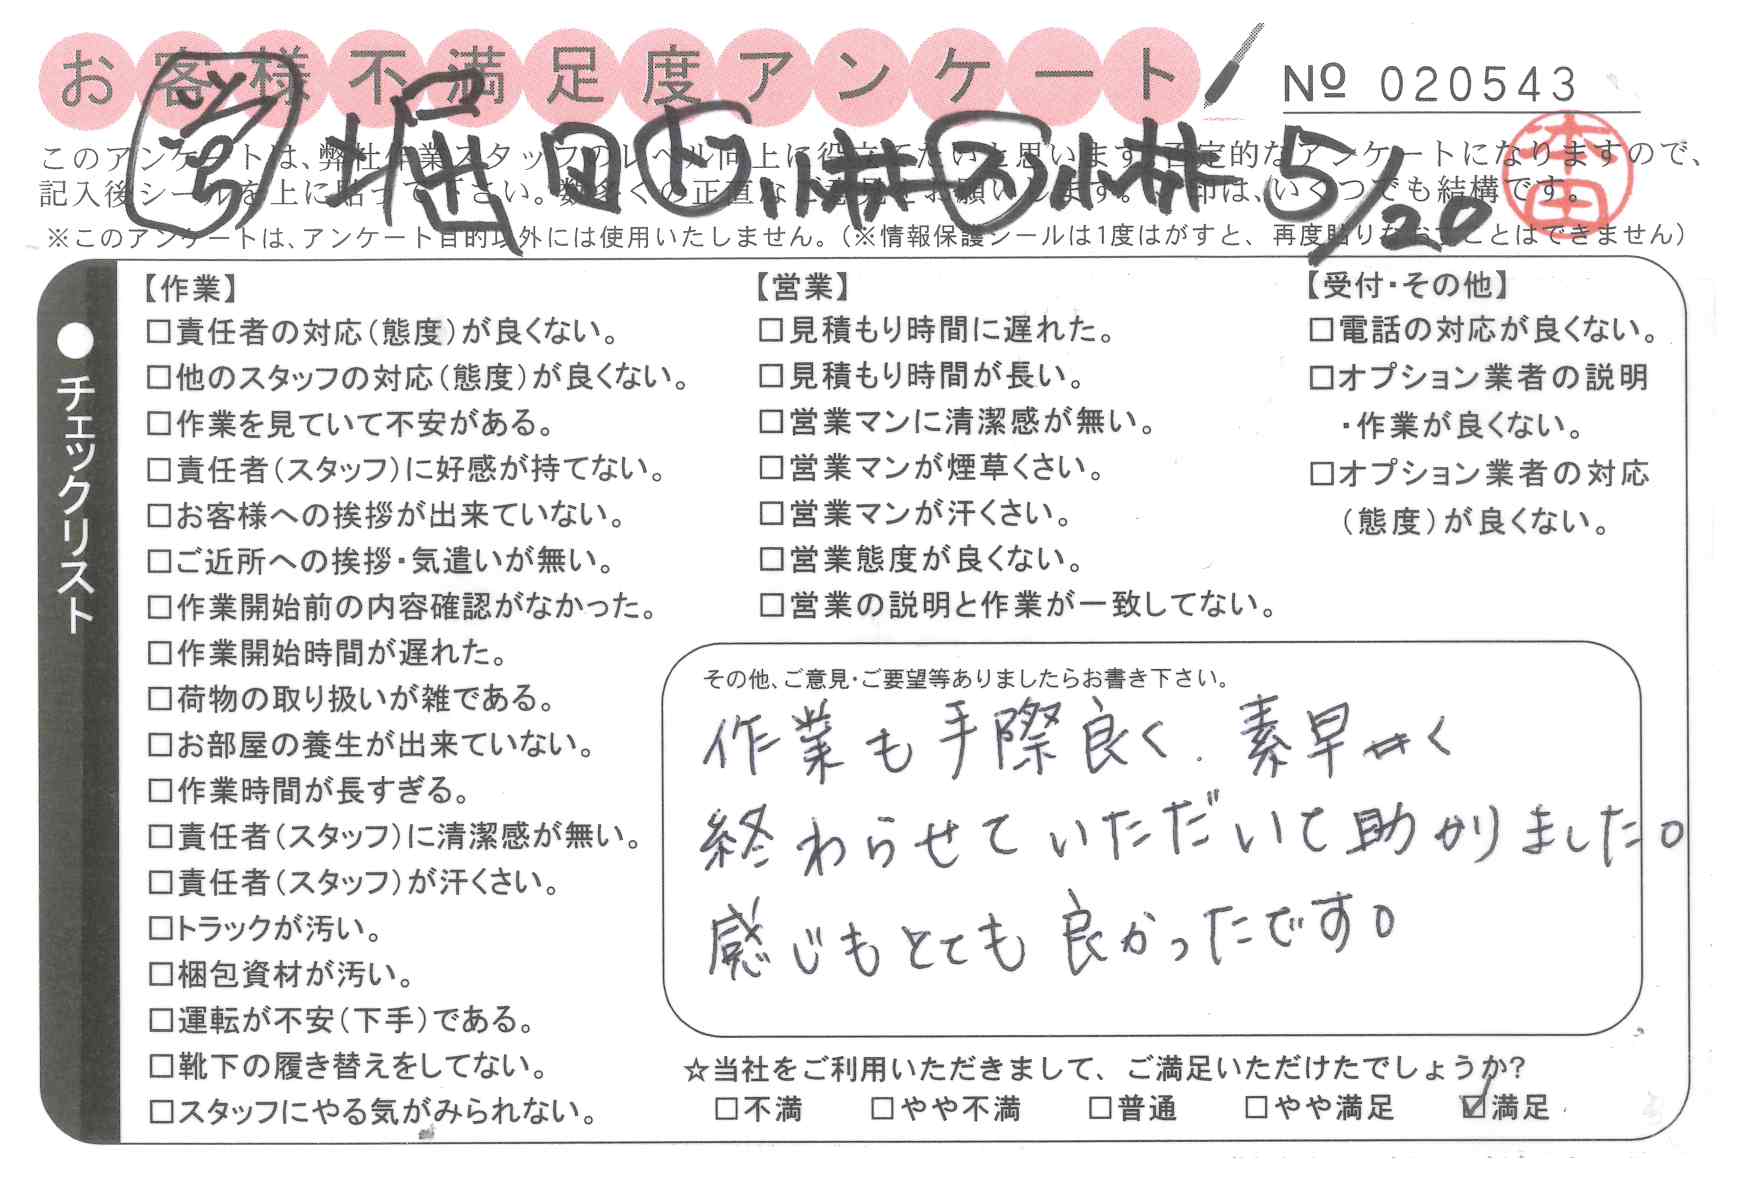 お客様不満足度アンケート
№ 020543
堀田 ト小林 ス小林 5/20
本田
このアンケートは、弊社作業スタッフのレベル向上に役立てたいと思います。否定的なアンケートになりますので、
記入後シールを上に貼って下さい。数多くの正直なご意見をお願いします。
印は、いくつでも結構です。
※このアンケートは、アンケート目的以外には使用いたしません。（※情報保護シールは1度はがすと、再度貼りなおすことはできません）
●チェックリスト
【作業】
□責任者の対応（態度）が良くない。
□他のスタッフの対応（態度）が良くない。
□作業を見ていて不安がある。
□責任者（スタッフ）に好感が持てない。
□お客様への挨拶が出来ていない。
□ご近所への挨拶・気遣いが無い。
□作業開始前の内容確認がなかった。
□作業開始時間が遅れた。
□荷物の取り扱いが雑である。
□お部屋の養生が出来ていない。
□作業時間が長すぎる。
□責任者（スタッフ）に清潔感が無い。
□責任者（スタッフ）が汗くさい。
□トラックが汚い。
□梱包資材が汚い。
□運転が不安（下手）である。
□靴下の履き替えをしてない。
□スタッフにやる気がみられない。
【営業】
□見積もり時間に遅れた。
□見積もり時間が長い。
□営業マンに清潔感が無い。
□営業マンが煙草くさい。
□営業マンが汗くさい。
□営業態度が良くない。
□営業の説明と作業が一致してない。
【受付・その他】
□電話の対応が良くない。
□オプション業者の説明
・作業が良くない。
□オプション業者の対応
（態度）が良くない。
その他、ご意見・ご要望等ありましたらお書き下さい。
作業も手際良く、素早く
終わらせていただいて助かりました。
感じもとても良かったです。
☆当社をご利用いただきまして、ご満足いただけたでしょうか？
□不満 □やや不満 □普通 □やや満足 ☑満足